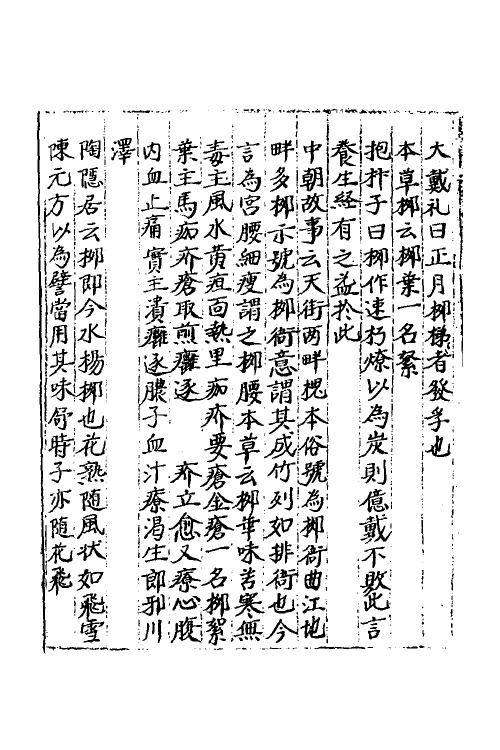 大戴礼曰正月柳稊者發孚也
本草柳云柳葉一名絮
抱朴子曰柳作速朽燎以為炭則億載不敗此言
養生経有之益扵此
中朝故事云天街两畔槐木俗號為槐衙曲江地
畔多柳亦號為柳衙意謂其成竹列如排衙也今
言為宮腰細瘦謂之柳腰本草云柳華味苦寒無
毒主風水黄疸面熱黒痂疥要瘡金瘡一名柳絮
葉主馬疥痂瘡取煎癰逐 疥立愈又療心腹
内血止痛實主潰癰逐膿子血汁療渴生郎邪川
澤
陶隠居云柳即今水楊柳也花熟随風状如飛雪
陳元方以為譬當用其味舒時子亦随花飛